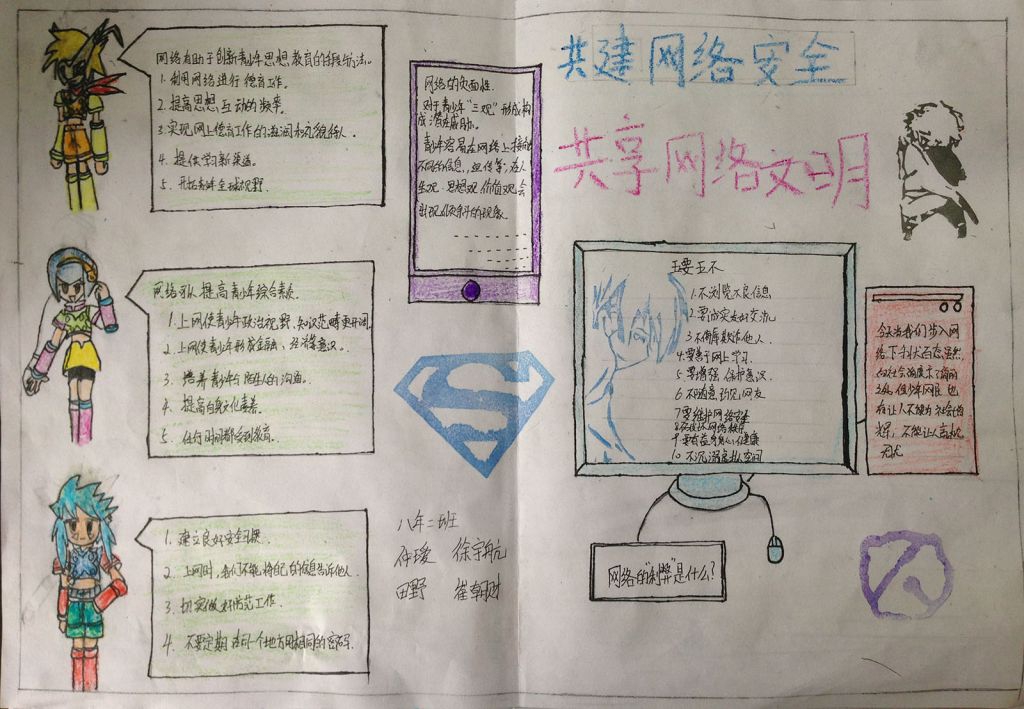 共建网络安全
共享网络文明
网络有助于创新青少年思想教育的手段与方法。
1. 利用网络进行德育工作。
2. 提高思想互动的频率。
3. 实现网上德育工作的滋润和
4. 提供学习新渠道。
5. 开拓青年全球视野.
网络可以提高青少年综合素款.
1. 上网使青少年政治视野,知识范畴更开阔.
2. 上网使青少年形成金融、经济意识。
3. 培养青少年与陌生人的沟通。
4. 提高自身文化素养.
5. 任何时间都受到教育.
1. 建立良好安全习惯.
2. 上网时,我们不能将自己的信息告诉他人.
3. 切实做好防范工作.
4. 不要定期在同一个地方用相同的密码.
网络的负面性.
对于青少年“三观”形成构
成潜在威胁。
青少年容易在网络上接触
不同的信息,
生观、思想观、价值观会
出现倾斜的现象.
五要五不
1.不浏览不良信息
2.要诚实友好交流
3.不侮辱欺诈他人.
4.要善于网上学习.
5.要增强保护意识.
6.不随意约见网友
7要维护网络安全
8.不破坏网络秩序
9 要有益身心健康
10 不沉溺虚拟空间
今天当我们步入网
络下
让人不能
辉,不能让人高枕
无忧
网络的“利弊”是什么?
八年二班
徐宇航
田野 崔朝财